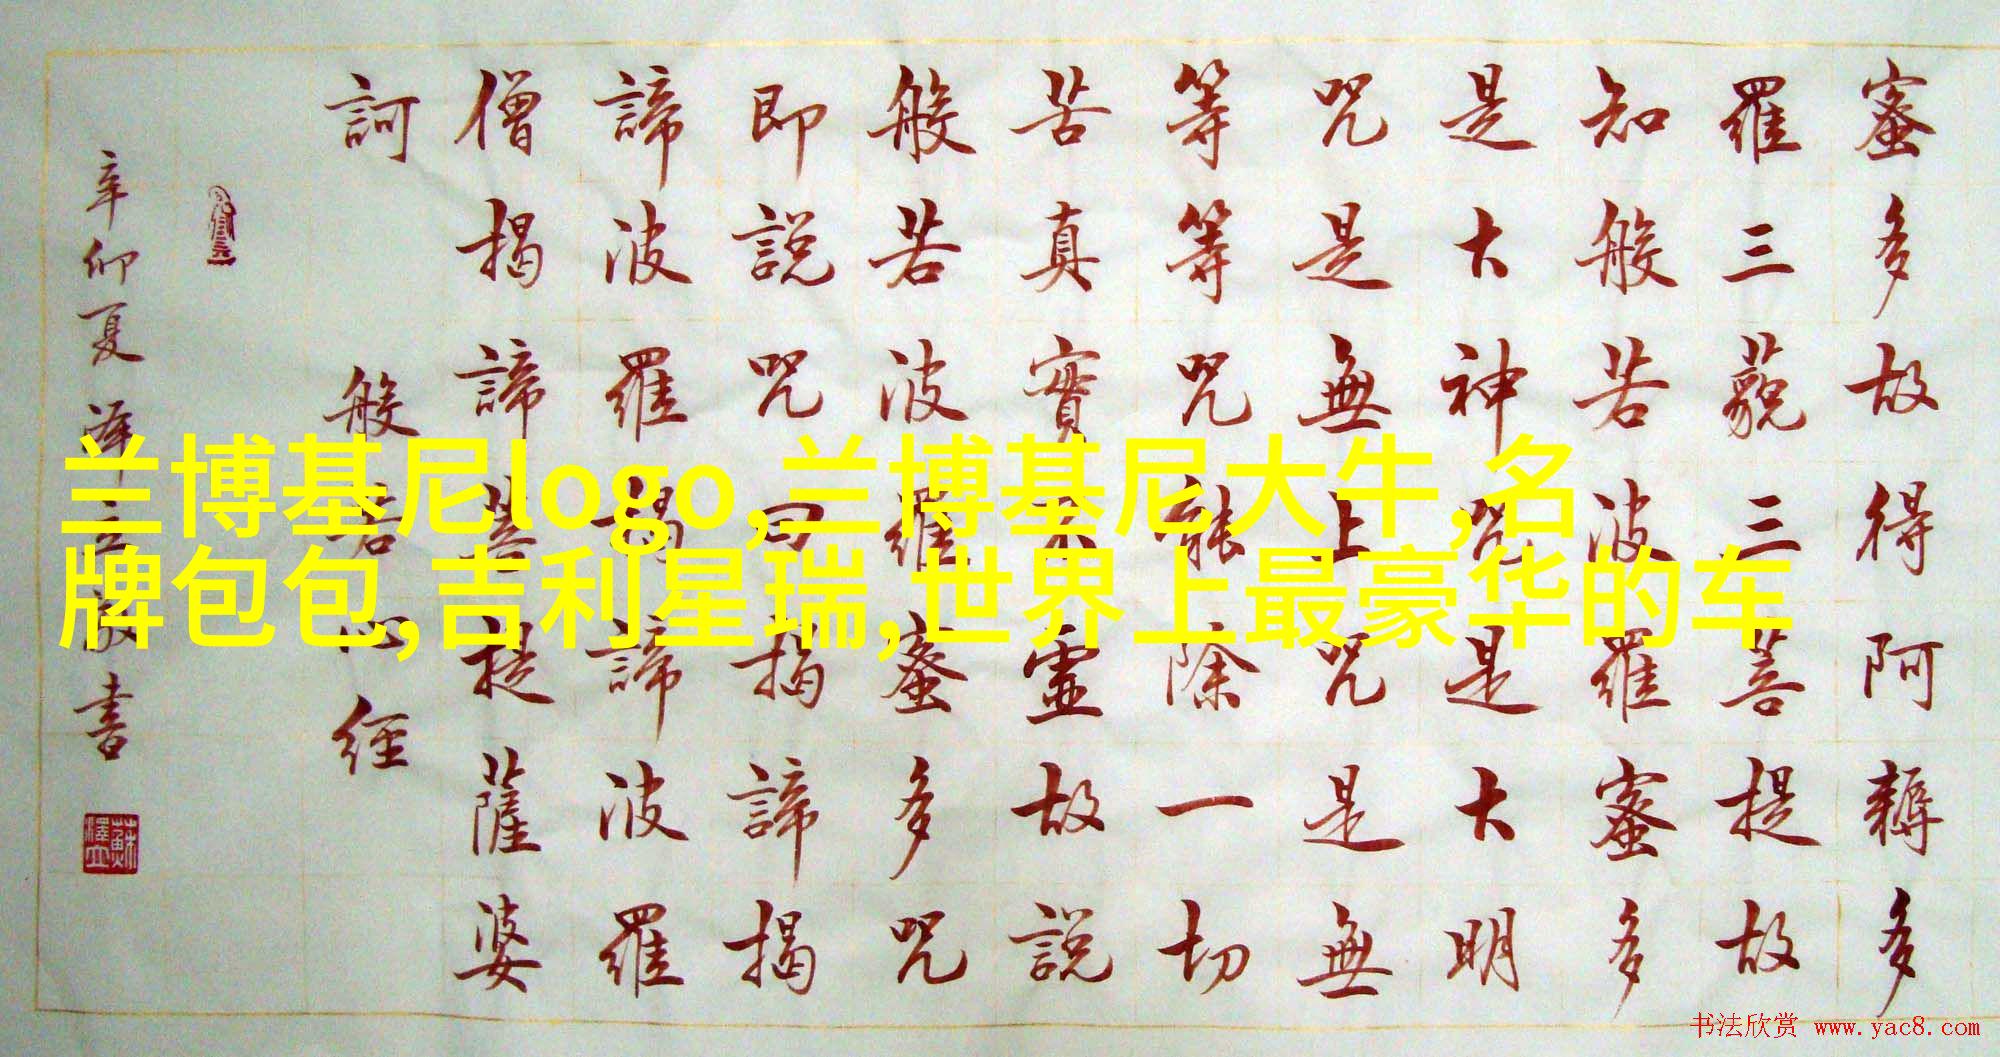 蜜多故得阿耨多
羅三藐三菩提故
知般若波羅蜜多
是大神咒是大明
咒是無上咒是無
等等咒能除一切
苦真實不虛故說
般若波羅蜜多咒
即說咒曰揭諦揭
諦波羅揭諦波羅
僧揭諦菩提薩婆
訶 般若心經
辛卯夏澤立敬書
兰博基尼logo,兰博基尼大牛,名
牌包包,吉利星瑞,世界上最豪华的车
书法欣赏 www.yac8.com